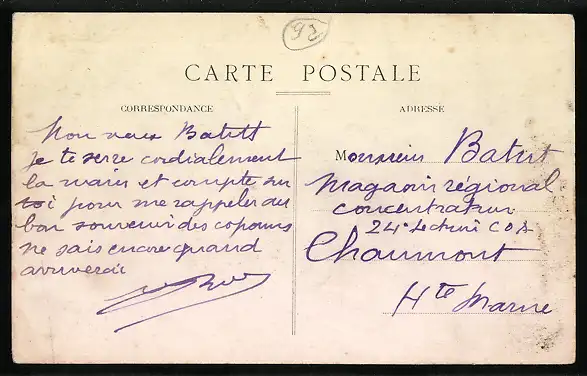 92
CARTE POSTALE
CORRESPONDANCE
ADRESSE
Mon vieux Batutt
Je te serre cordialement
la main et compte sur
toi pour me rappeler au
bon souvenir des copains
ne sais encore quand
arriverai
Monsieur Batut
Magasin régional
concentrateur
24e
Chaumont
Hte Marne